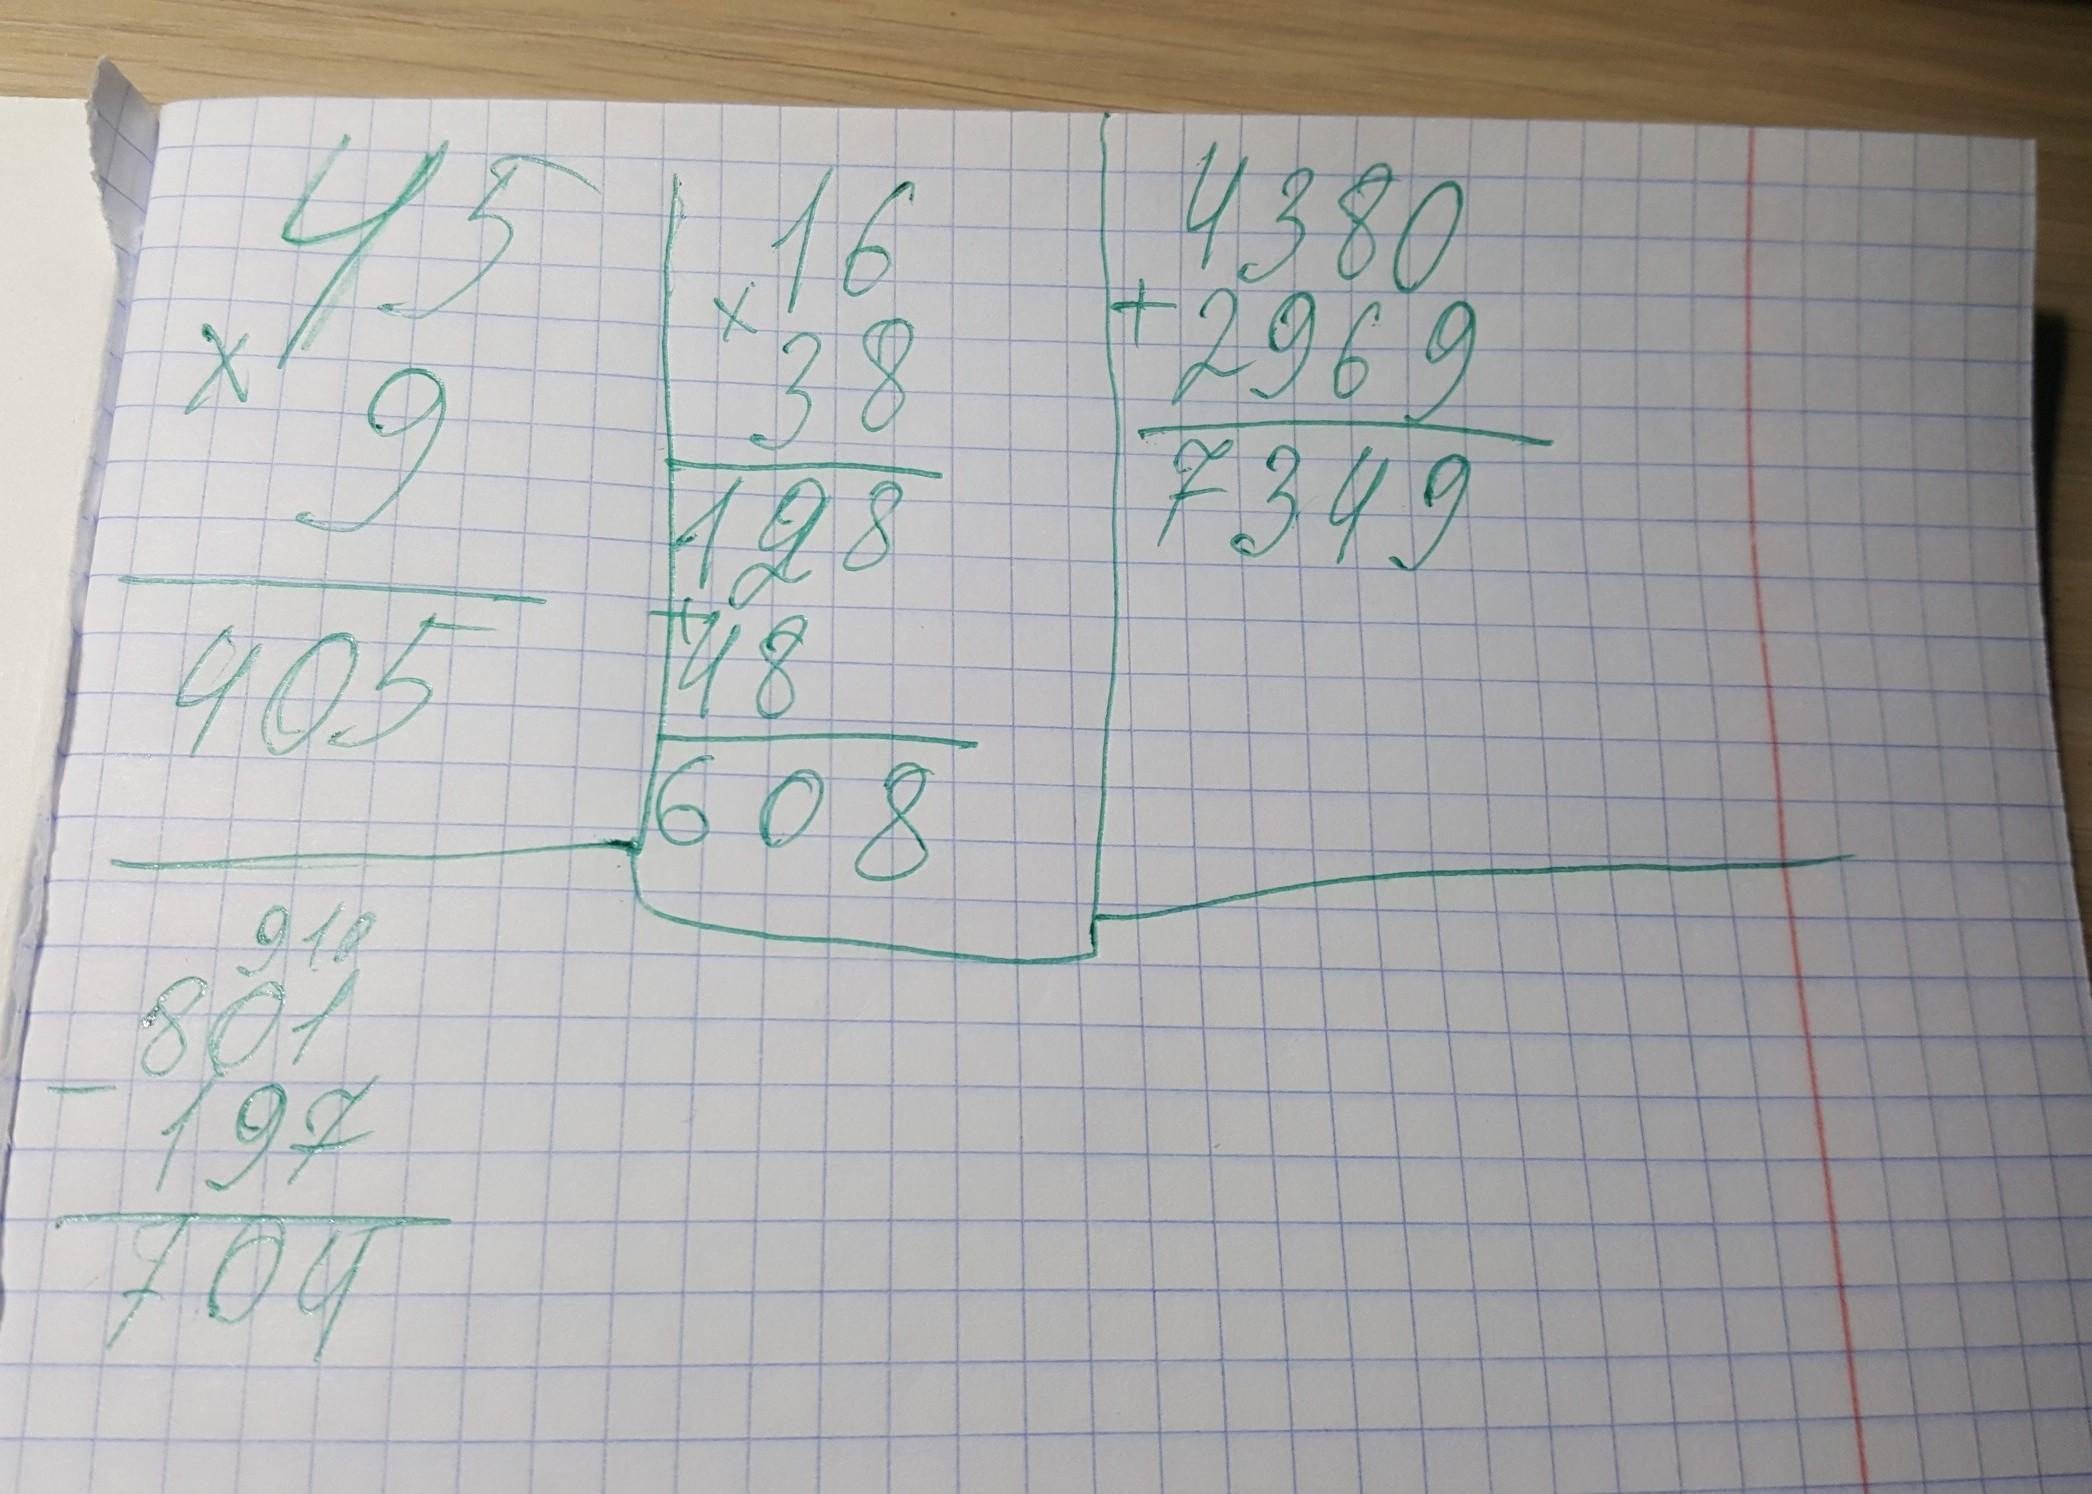 45
× 9
405
16
× 38
128
+ 48
608
4380
+ 2969
7349
910
801
- 197
704